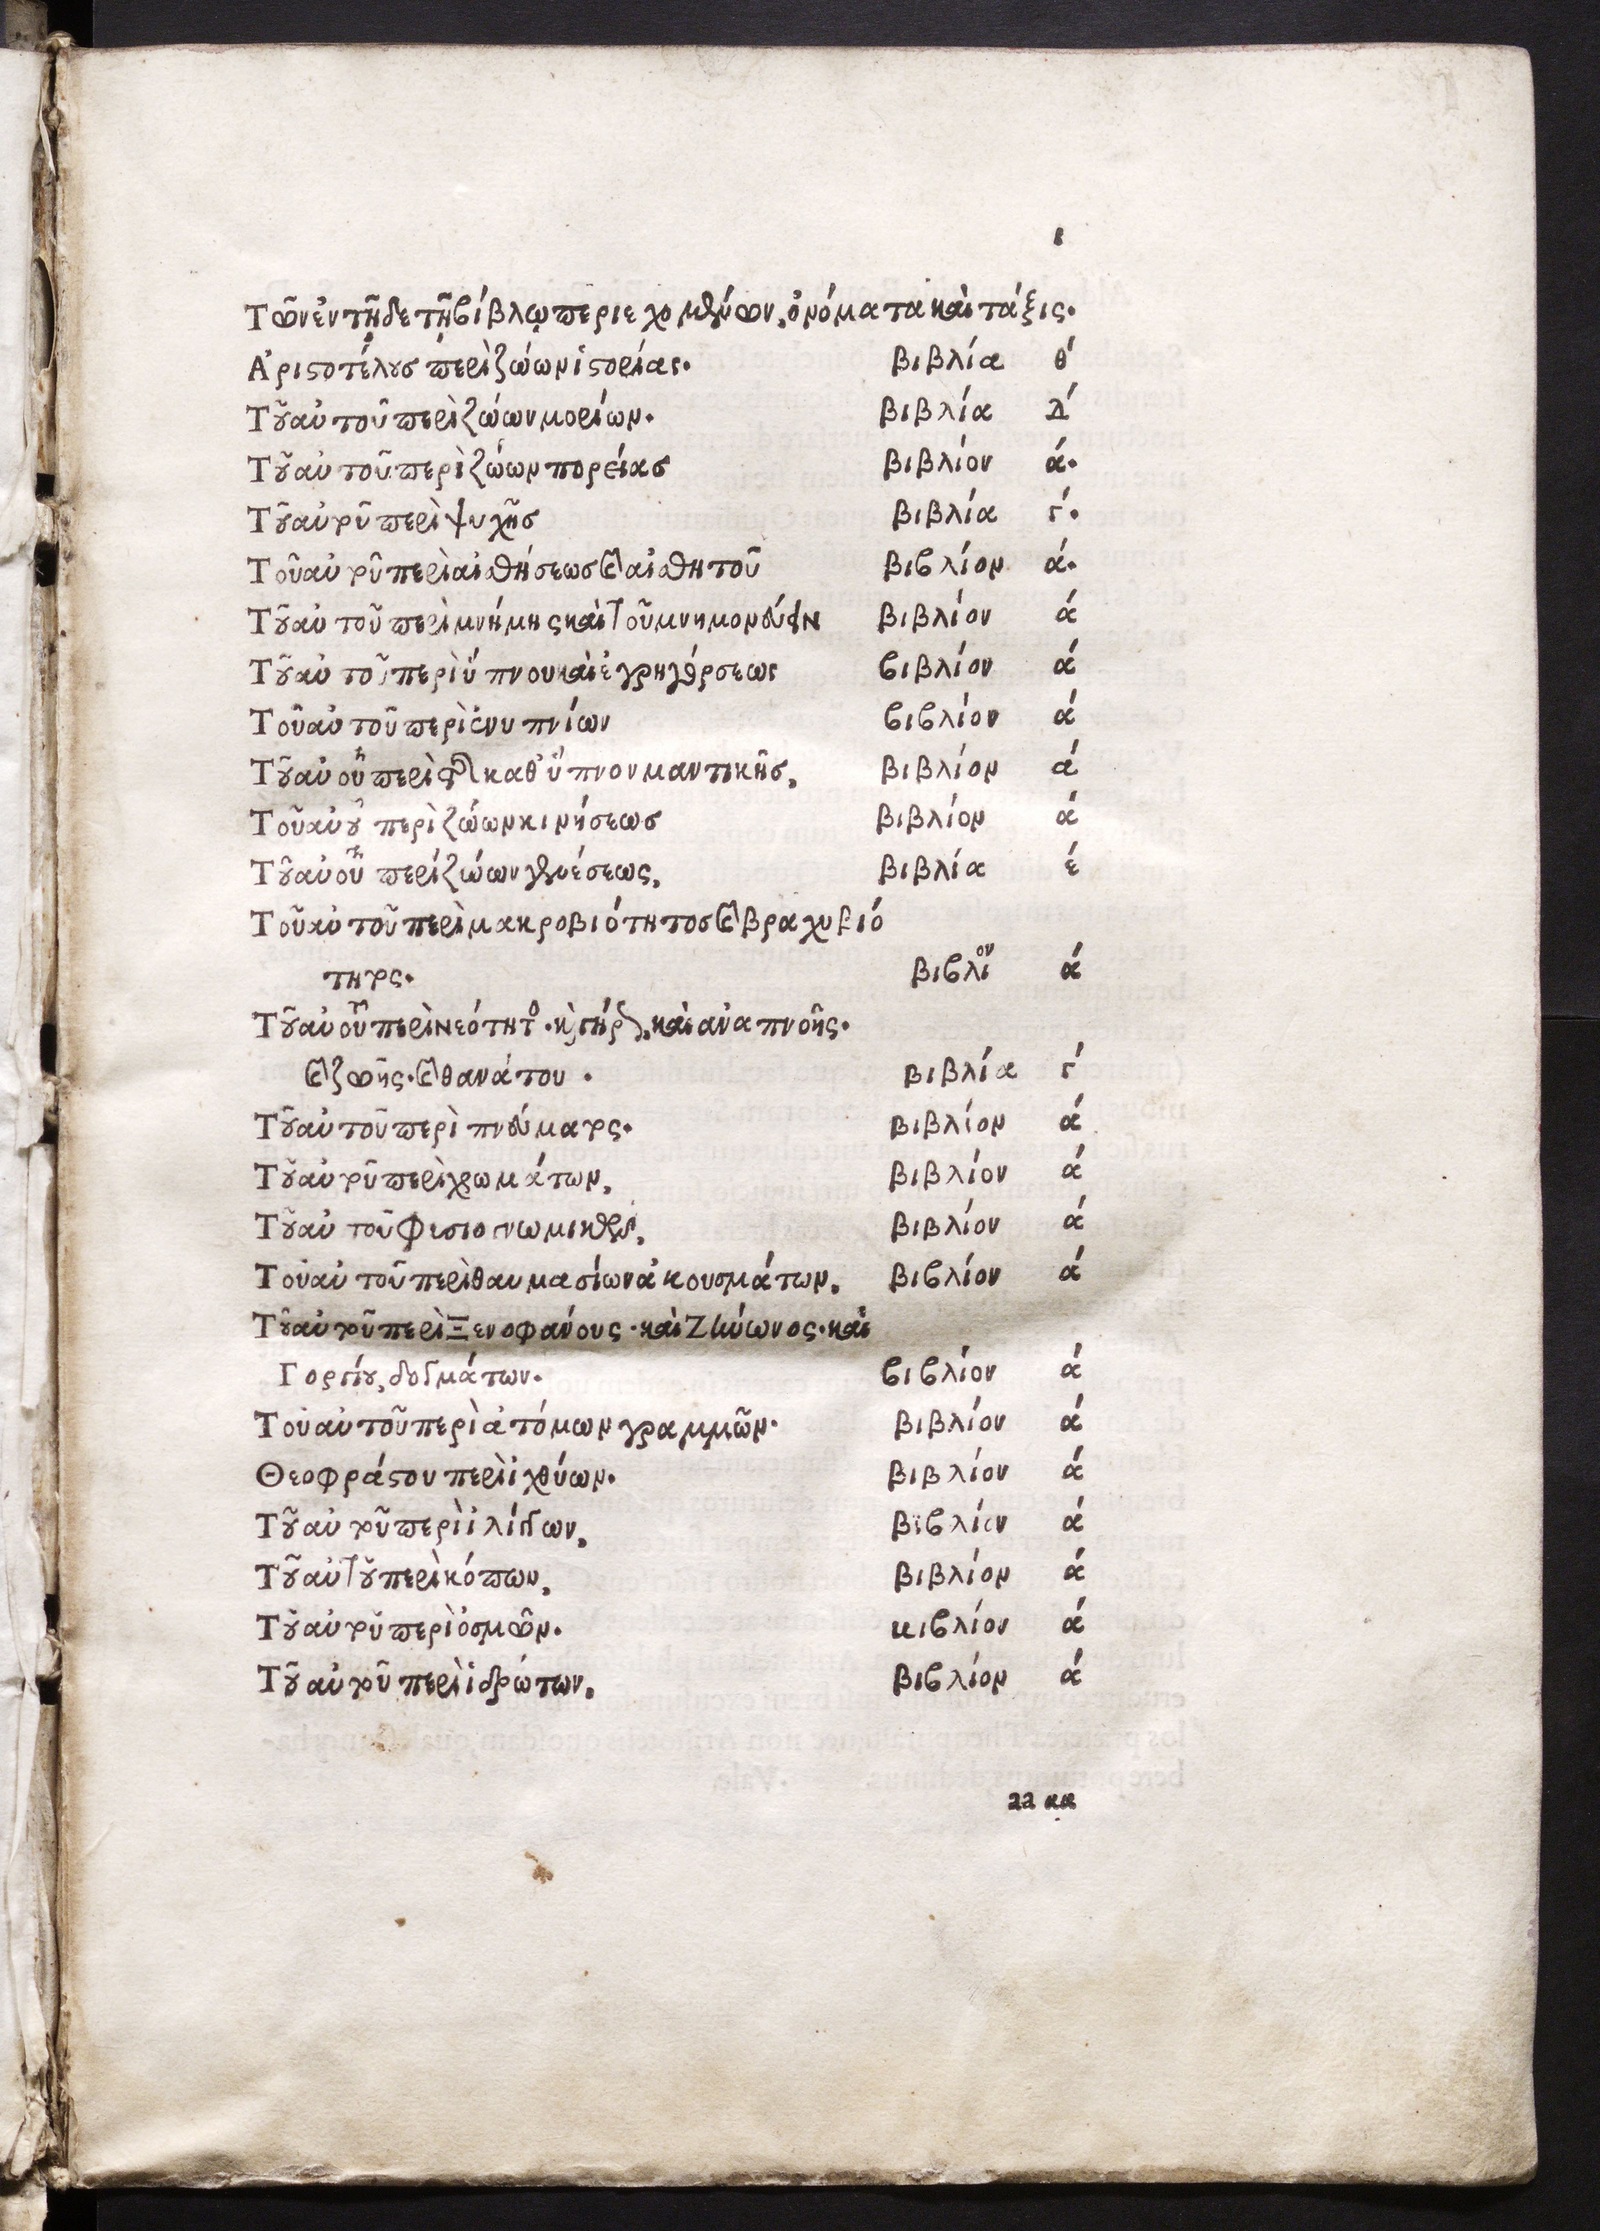 Τῶν ἐν τῇδε τῇ βίβλῳ περιεχομένων, ὀνόματα καὶ τάξις.
Ἀριστοτέλους περὶ ζώων ἱστορίας. βιβλία θ´
Τοῦ αὐτοῦ περὶ ζώων μορίων. βιβλία Δ´
Τοῦ αὐτοῦ περὶ ζώων πορείας βιβλίον ά.
Τοῦ αὐτοῦ περὶ ψυχῆς βιβλία γ´.
Τοῦ αὐτοῦ περὶ αἰσθήσεως καὶ αἰσθητοῦ βιβλίον ά.
Τοῦ αὐτοῦ περὶ μνήμης καὶ τοῦ μνημονεύειν βιβλίον ά
Τοῦ αὐτοῦ περὶ ὕπνου καὶ ἐγρηγόρσεως βιβλίον ά
Τοῦ αὐτοῦ περὶ ἐνυπνίων βιβλίον ά
Τοῦ αὐτοῦ περὶ τῆς καθ᾽ ὕπνον μαντικῆς, βιβλίον ά
Τοῦ αὐτοῦ περὶ ζώων κινήσεως βιβλίον ά
Τοῦ αὐτοῦ περί ζώων γενέσεως, βιβλία έ
Τοῦ αὐτοῦ περὶ μακροβιότητος καὶ βραχυβιό
τητος. βιβλίον ά
Τοῦ αὐτοῦ περὶ νεότητος. καὶ γήρως, καὶ ἀναπνοῆς.
καὶ ζωῆς. καὶ θανάτου. βιβλία γ´
Τοῦ αὐτοῦ περὶ πνεύματος. βιβλίον ά
Τοῦ αὐτοῦ περὶ χρωμάτων, βιβλίον ά
Τοῦ αὐτοῦ Φισιογνωμικῶν, βιβλίον ά
Τοῦ αὐτοῦ περὶ θαυμασίων ἀκουσμάτων, βιβλίον ά
Τοῦ αὐτοῦ περὶ Ξενοφάνους. καὶ Ζήνωνος. καὶ
Γοργίου, δογμάτων. βιβλίον ά
Τοῦ αὐτοῦ περὶ ἀτόμων γραμμῶν. βιβλίον ά
Θεοφράστου περὶ ἰχθύων. βιβλίον ά
Τοῦ αὐτοῦ περὶ ἰλίγγων, βιβλίον ά
Τοῦ αὐτοῦ περὶ κόπων, βιβλίον ά
Τοῦ αὐτοῦ περὶ ὀσμῶν. κιβλίον ά
Τοῦ αὐτοῦ περὶ ἱδρώτων, βιβλίον ά
aa αα